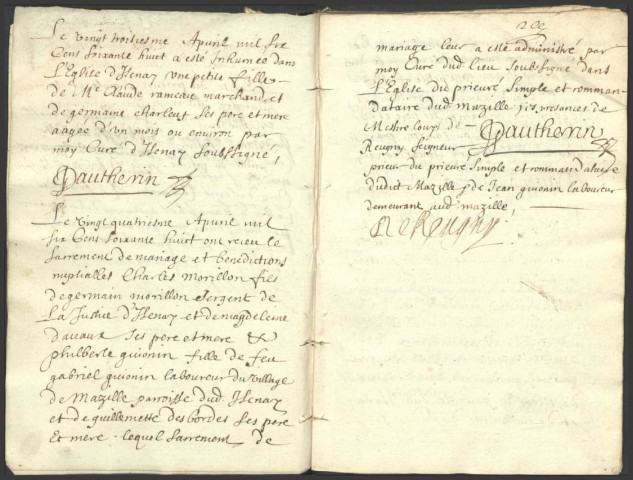 Le vingt troiesme Apvril mil six
Cens soixante huict a esté Inhumeo dans
L'Eglise d'Isenay une petite fille
de Me Claude rameau marchand et
de germaine Charleut ses pere et mere
aagée d'un mois ou environ par
moy Curé d'Isenay soubssigné,
Gautherin
Le vingt quatriesme Apvril mil
six Cens soixante huict ont receu le
sacrement de mariage et benedictions
nuptialles Charles morillon fils
de germain morillon sergent de
La Justice d'Isenay et de magdeleine
davaux ses pere et mere &
philberte guionin fille de feu
gabriel guionin laboureur du village
de Mazille parroisse dud Isenay
et de guillemette des bordes ses pere
et mere . lequel sacrement de
mariage leur a esté administré par
moy Curé dud. lieu soubssigné dans
l'Eglise du prieuré simple et comman-
dataire dud Mazille, es presances de
Messire Louys de
Gautherin
Reugny seigneur
prieur du prieuré simple et commandataire
dudict Mazille, & de Jean guionin laboureur
demeurant aud. mazille,
De Reugny